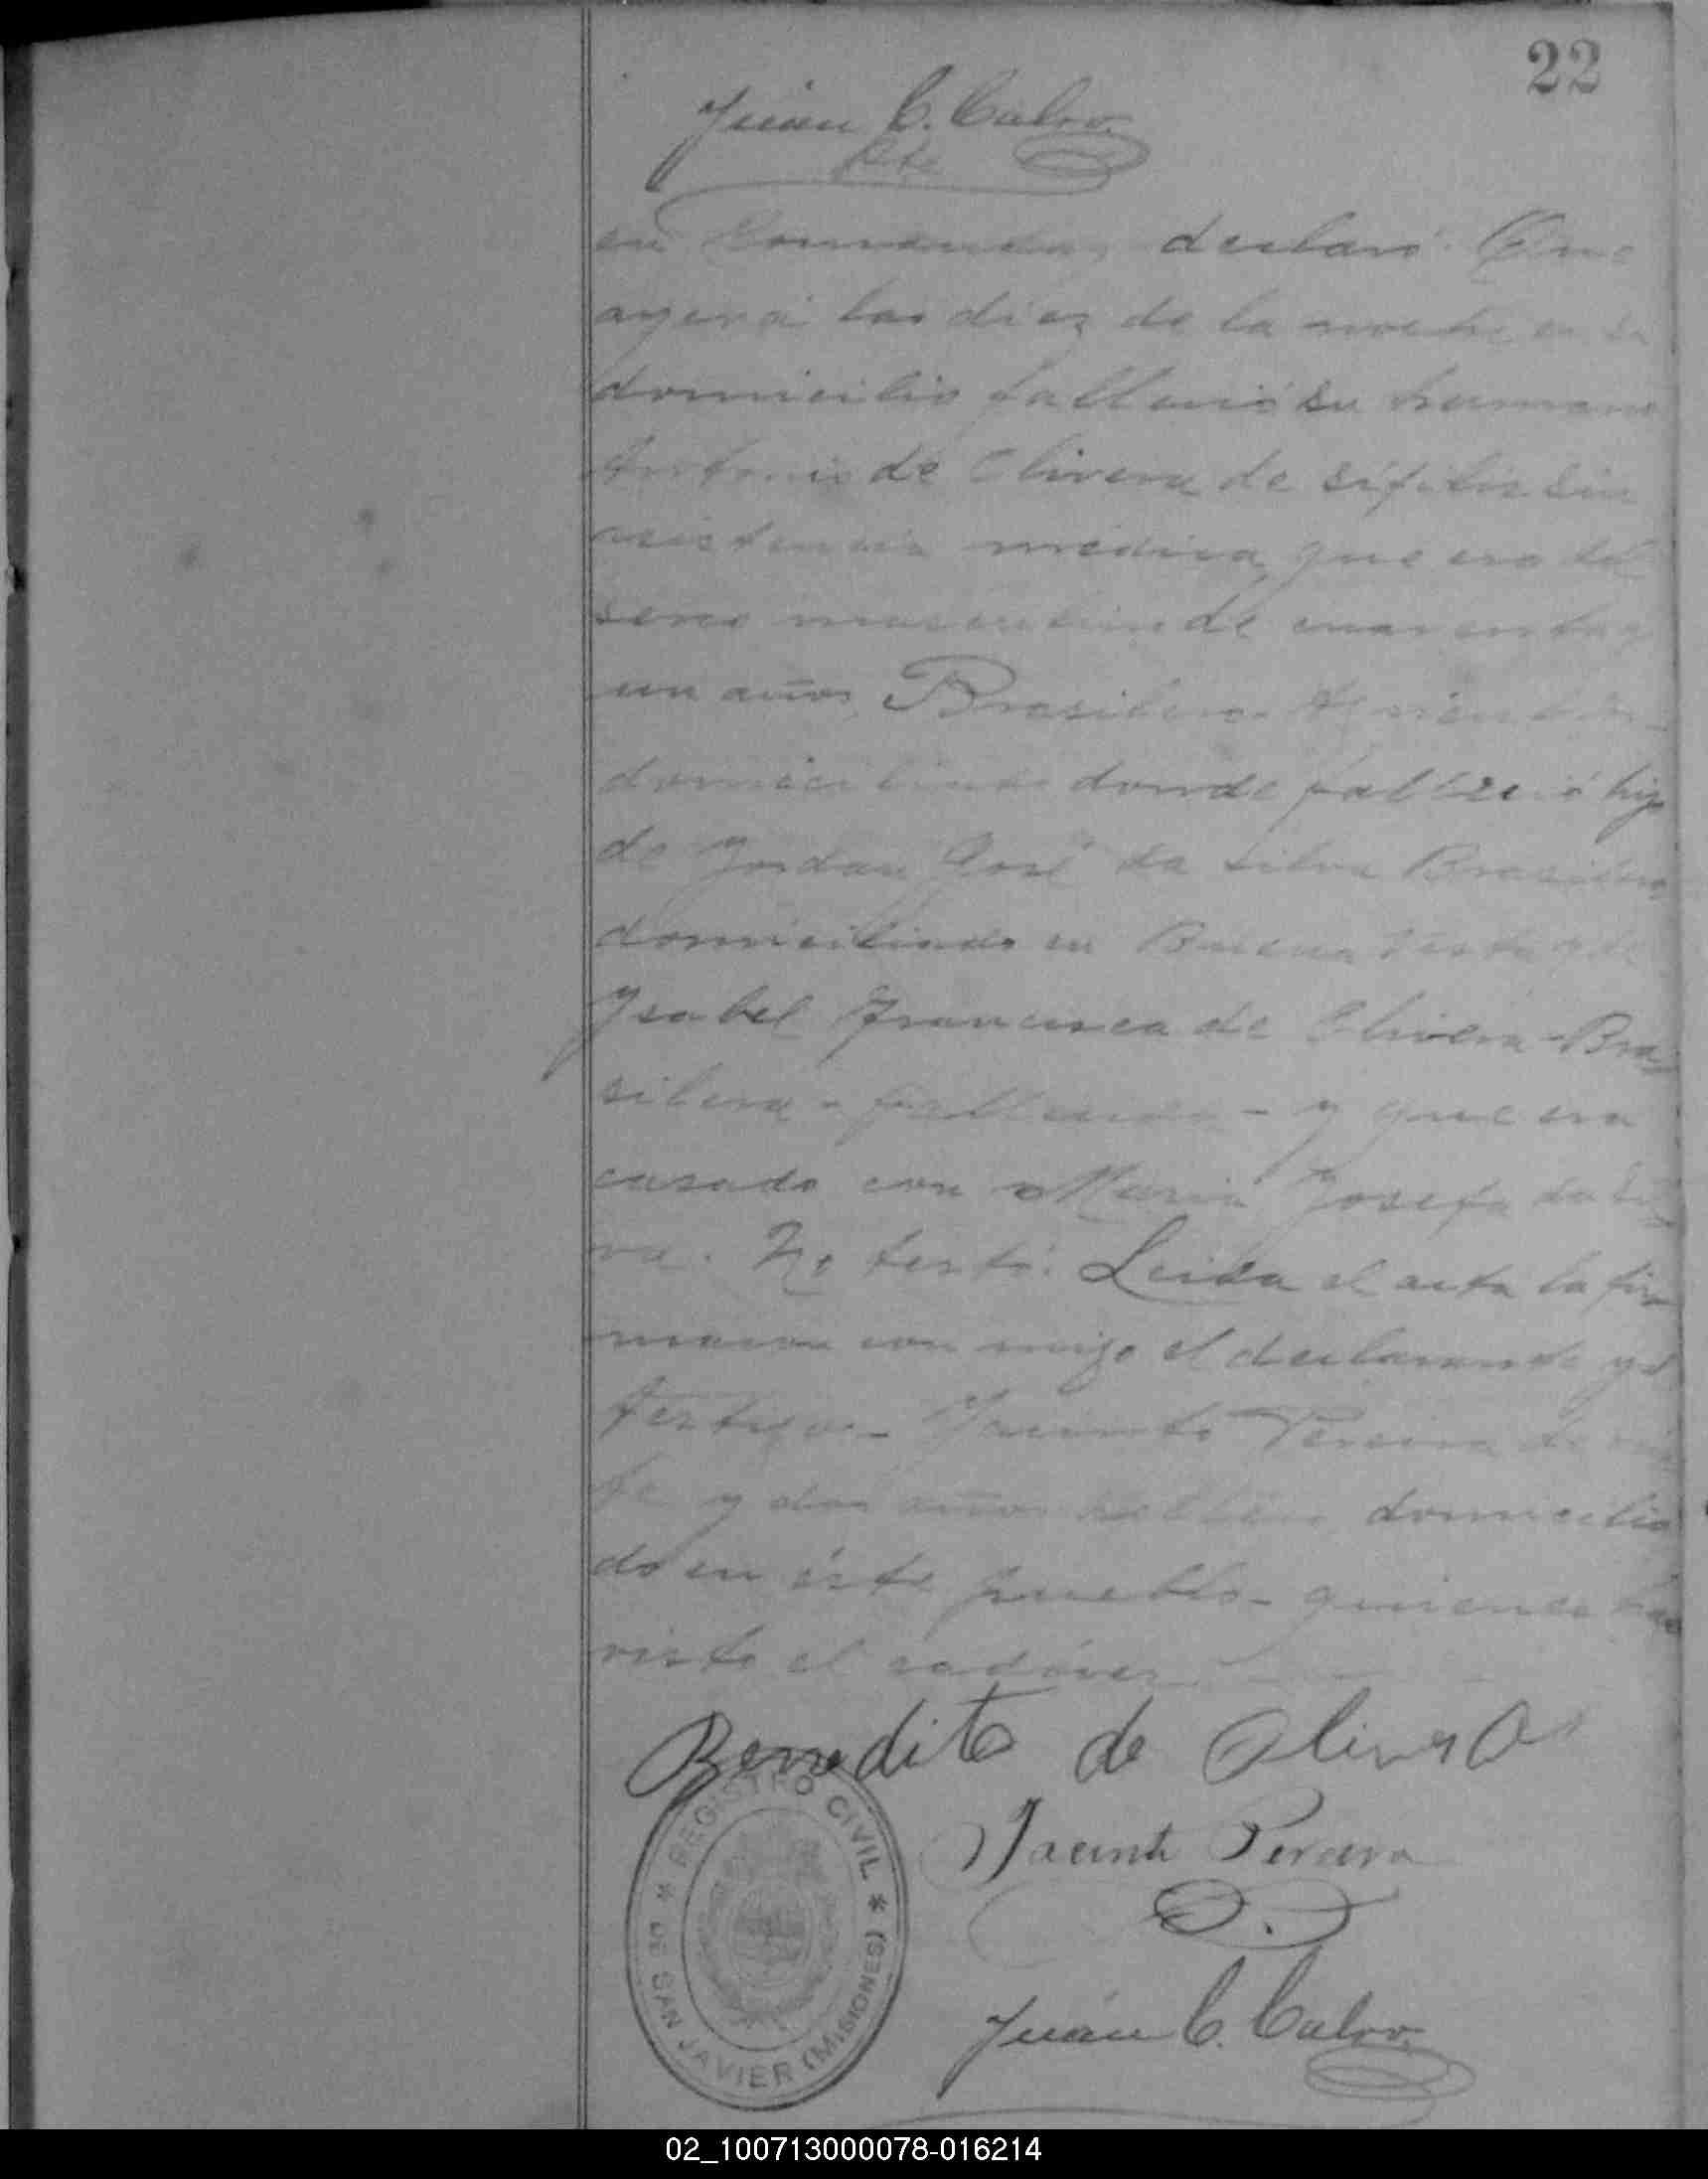 22
Juan C. Calvo
Jefe
en declaró: Que
ayer á las diez de la noche en su
domicilio falleció su hermano
Antonio de Olivera de sífilis sin
asistencia médica, que era del
sexo masculino de cuarenta y
un años, Brasilero
domiciliado donde falleció hijo
de Jordan José da Silva Brasilero
domiciliado en Buena Vista y de
Ysabel Francisca de Olivera - Bra-
silera - fallecida - y que era
casado con Maria Josefa da Sil-
va. No testó. Leida el acta la fir-
maron con migo el declarante y el
testigo - Jacinto Pereira de vein-
te y dos años domicilia
do en éste pueblo - quienes han
visto el cadáver
Benedito de Olivera
Jacinto Pereira
Juan C. Calvo
* REGISTRO CIVIL *
DE SAN JAVIER (MISIONES)
02_100713000078-016214